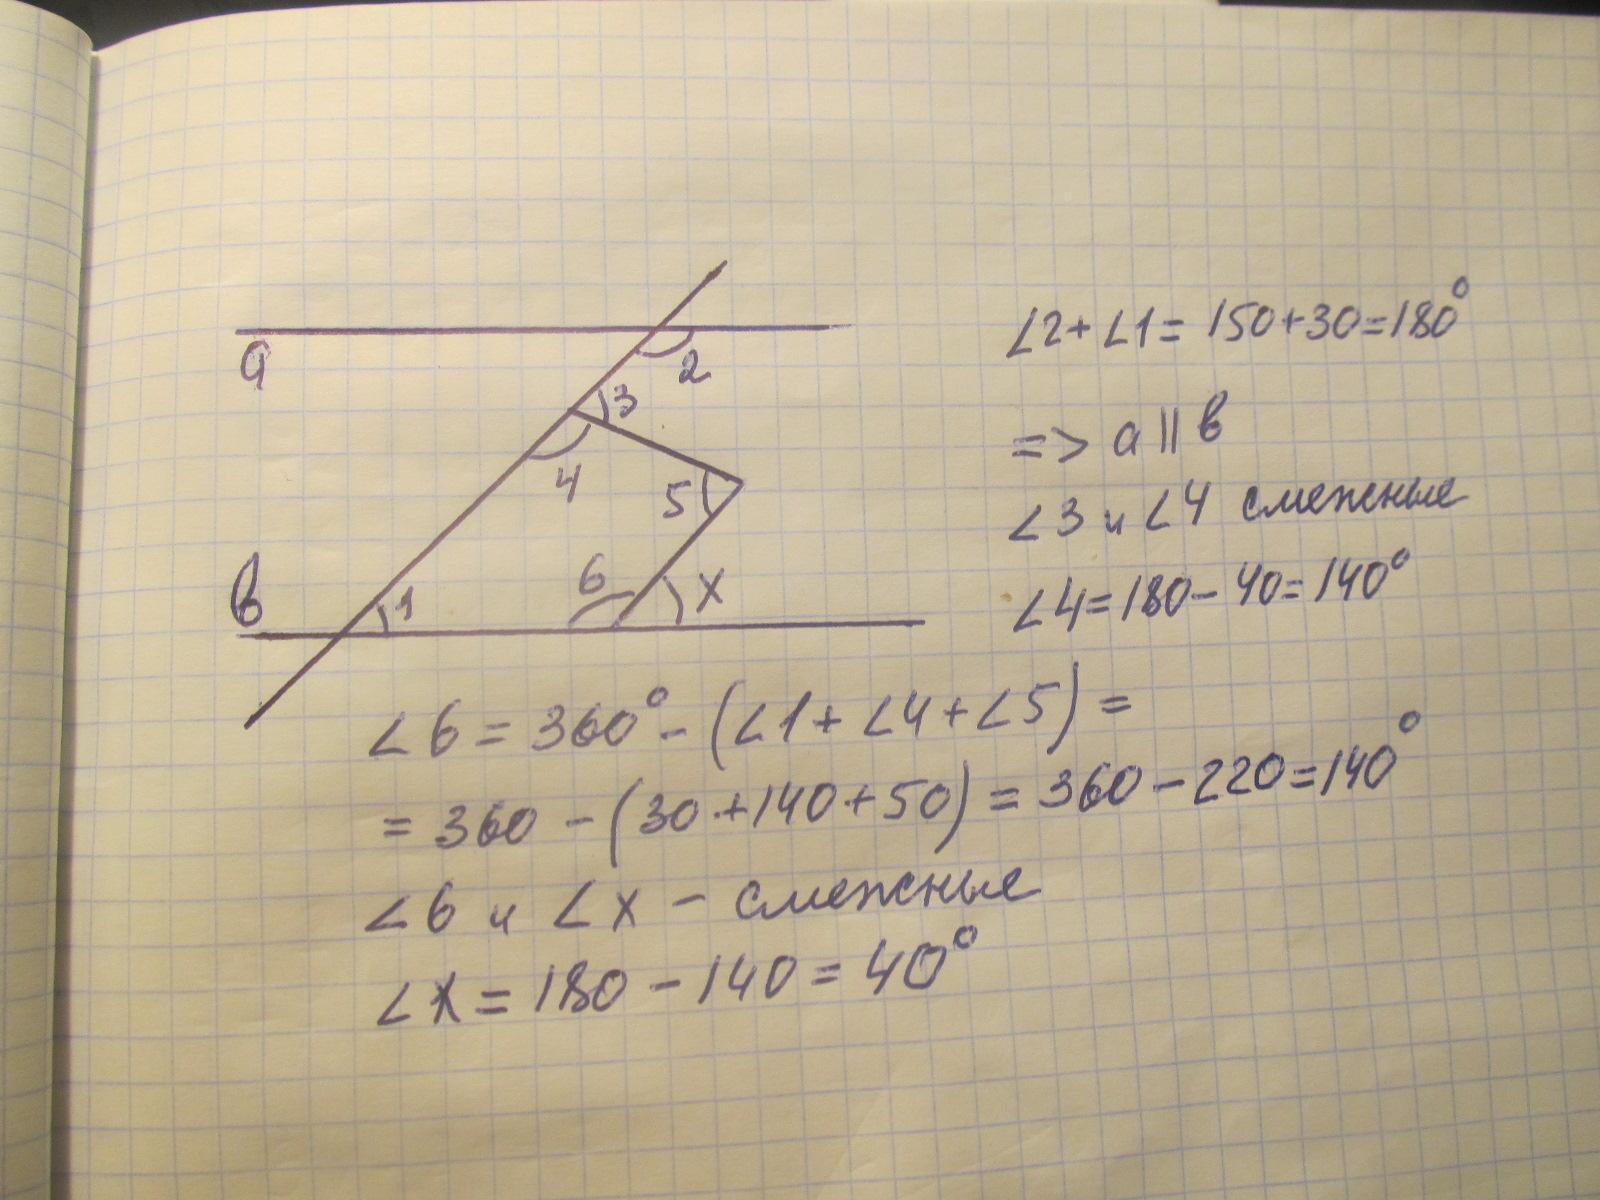 a
2
3
4
5
в
1
6
x
∠2+∠1= 150+30=180°
=> a || в
∠3 и ∠4 смежные
∠4=180-40=140°
∠6=360°-(∠1+∠4+∠5)=
=360-(30+140+50)=360-220=140°
∠6 и ∠x - смежные
∠x=180-140=40°